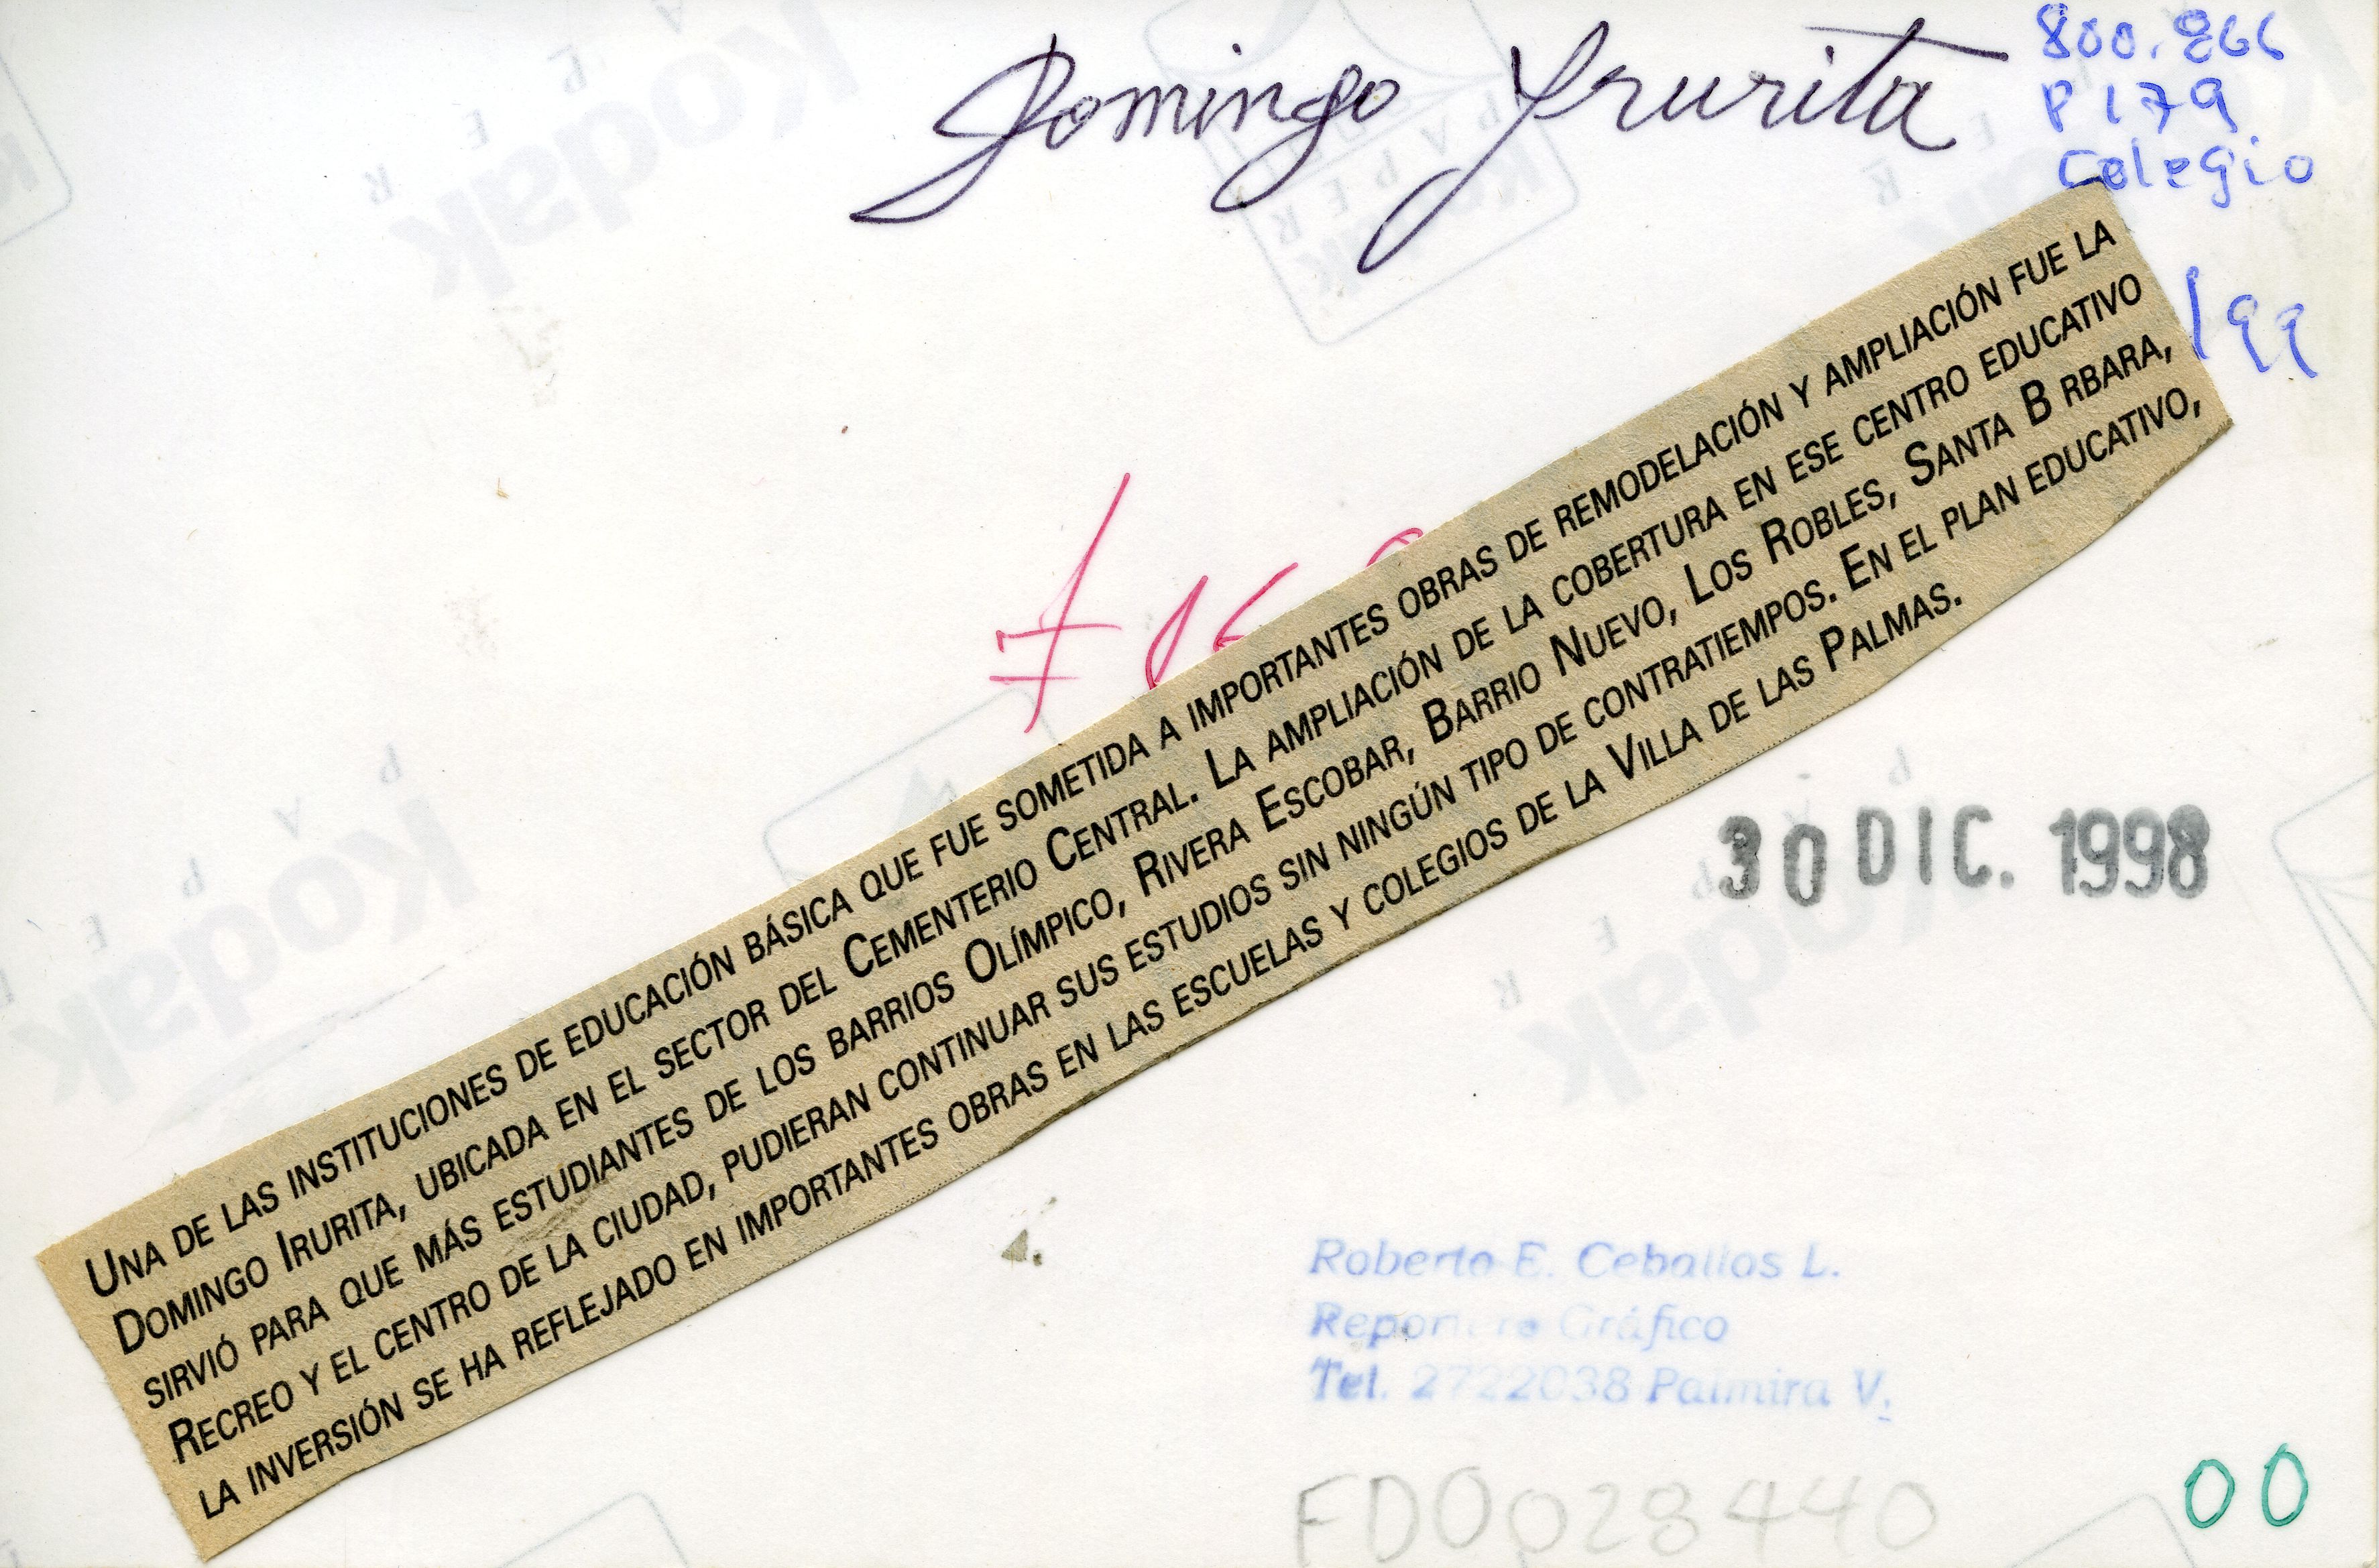 Domingo Irurita
800.866
P 179
Colegio
199
UNA DE LAS INSTITUCIONES DE EDUCACIÓN BÁSICA QUE FUE SOMETIDA A IMPORTANTES OBRAS DE REMODELACIÓN Y AMPLIACIÓN FUE LA
DOMINGO IRURITA, UBICADA EN EL SECTOR DEL CEMENTERIO CENTRAL. LA AMPLIACIÓN DE LA COBERTURA EN ESE CENTRO EDUCATIVO
SIRVIÓ PARA QUE MÁS ESTUDIANTES DE LOS BARRIOS OLÍMPICO, RIVERA ESCOBAR, BARRIO NUEVO, LOS ROBLES, SANTA B RBARA,
RECREO Y EL CENTRO DE LA CIUDAD, PUDIERAN CONTINUAR SUS ESTUDIOS SIN NINGÚN TIPO DE CONTRATIEMPOS. EN EL PLAN EDUCATIVO,
LA INVERSIÓN SE HA REFLEJADO EN IMPORTANTES OBRAS EN LAS ESCUELAS Y COLEGIOS DE LA VILLA DE LAS PALMAS.
30 DIC. 1998
Roberto E. Ceballos L.
Reportero Gráfico
Tel. 2722038 Palmira V.
FD0028440
00
Kodak